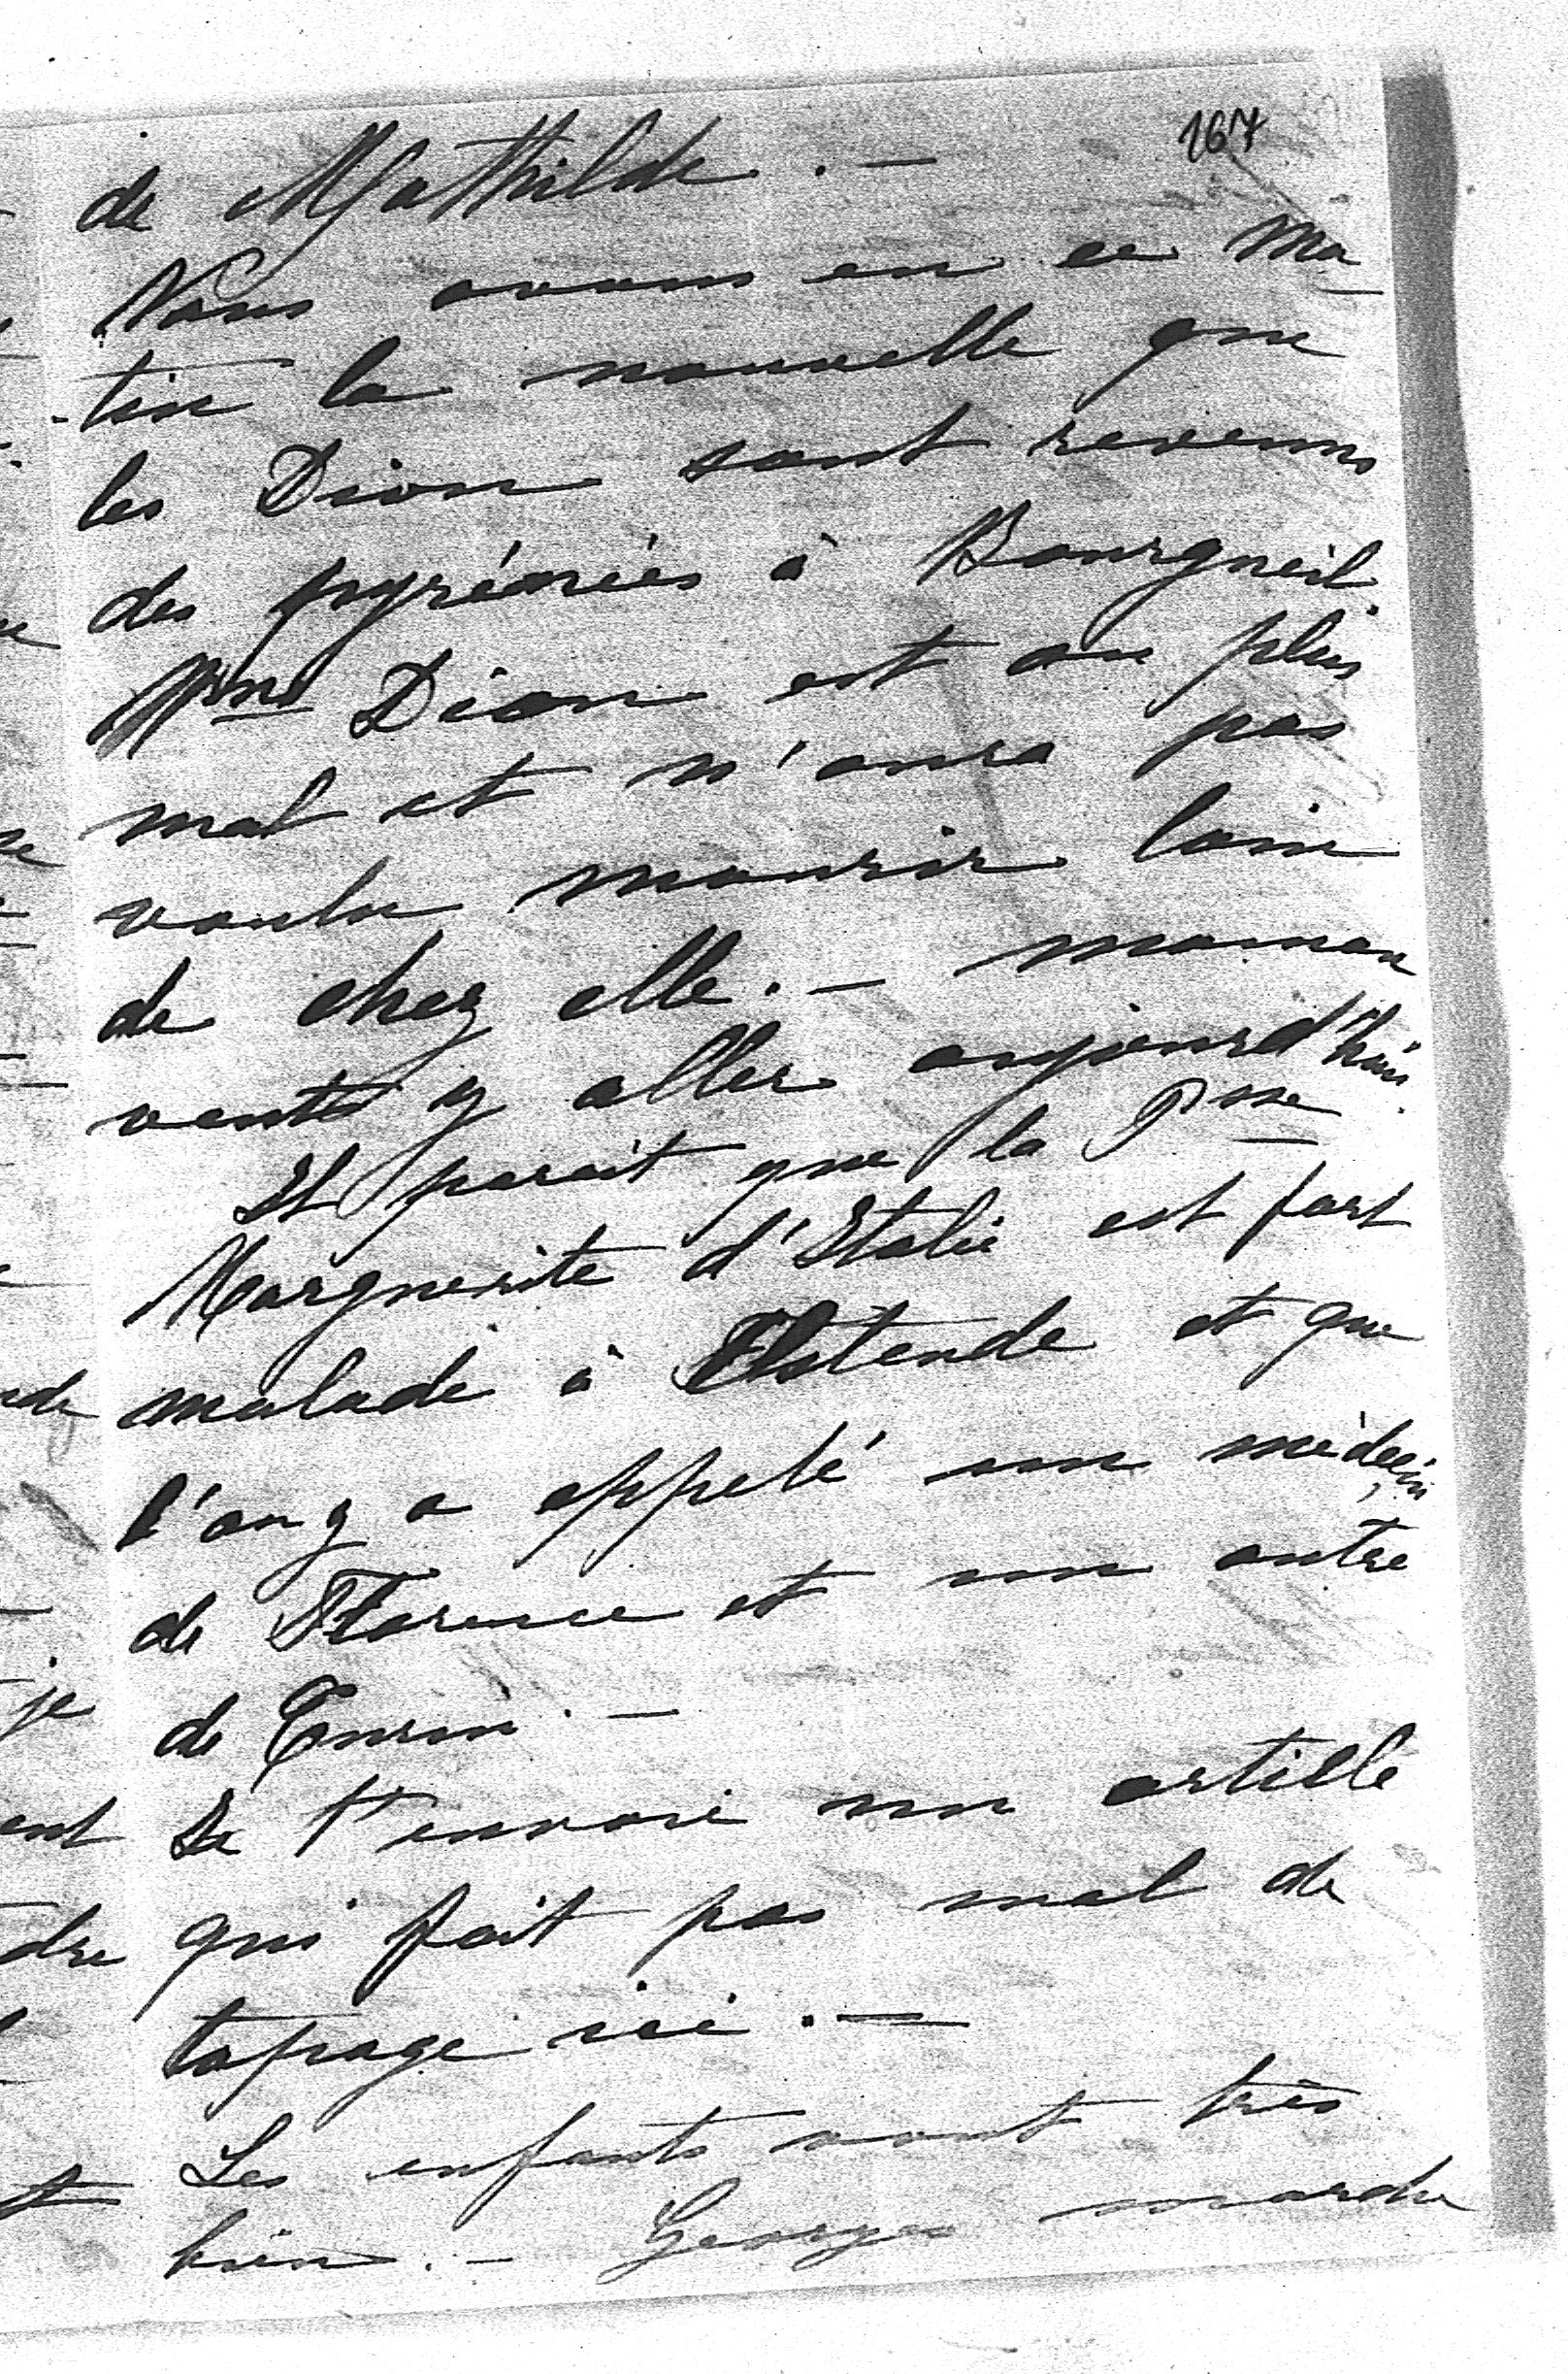 167
de Mathilde. —
Nous avons eu ce ma
-tin la nouvelle que
les Dion sont revenus
des pyrénées à Bourgueil.
Mme Dion est au plus
mal et n'aura pas
voulu mourir loin
de chez elle. — maman
veut y aller aujourd'hui.
Il parait que la Psse
Marguerite d'Italie est fort
malade à Ostende et que
l'on y a appelé un médecin
de Florence et un autre
de Turin. —
Je t'envoie un article
qui fait pas mal de
tapage ici. —
Les enfants vont très
bien. — Georges marche